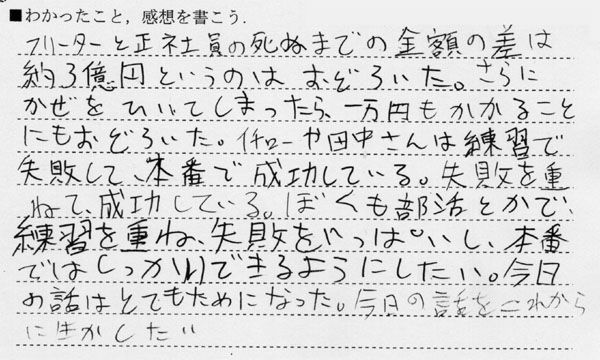 ■わかったこと，感想を書こう.
フリーターと正社員の死ぬまでの金額の差は
約3億円というのはおどろいた。さらに
かぜをひいてしまったら、一万円もかかること
にもおどろいた。イチローや田中さんは練習で
失敗して、本番で成功している。失敗を重
ねて、成功している。ぼくも部活とかで、
練習を重ね、失敗をいっぱいし、本番
ではしっかりできるようにしたい。今日
お話はとてもためになった。今日の話をこれから
に生かしたい